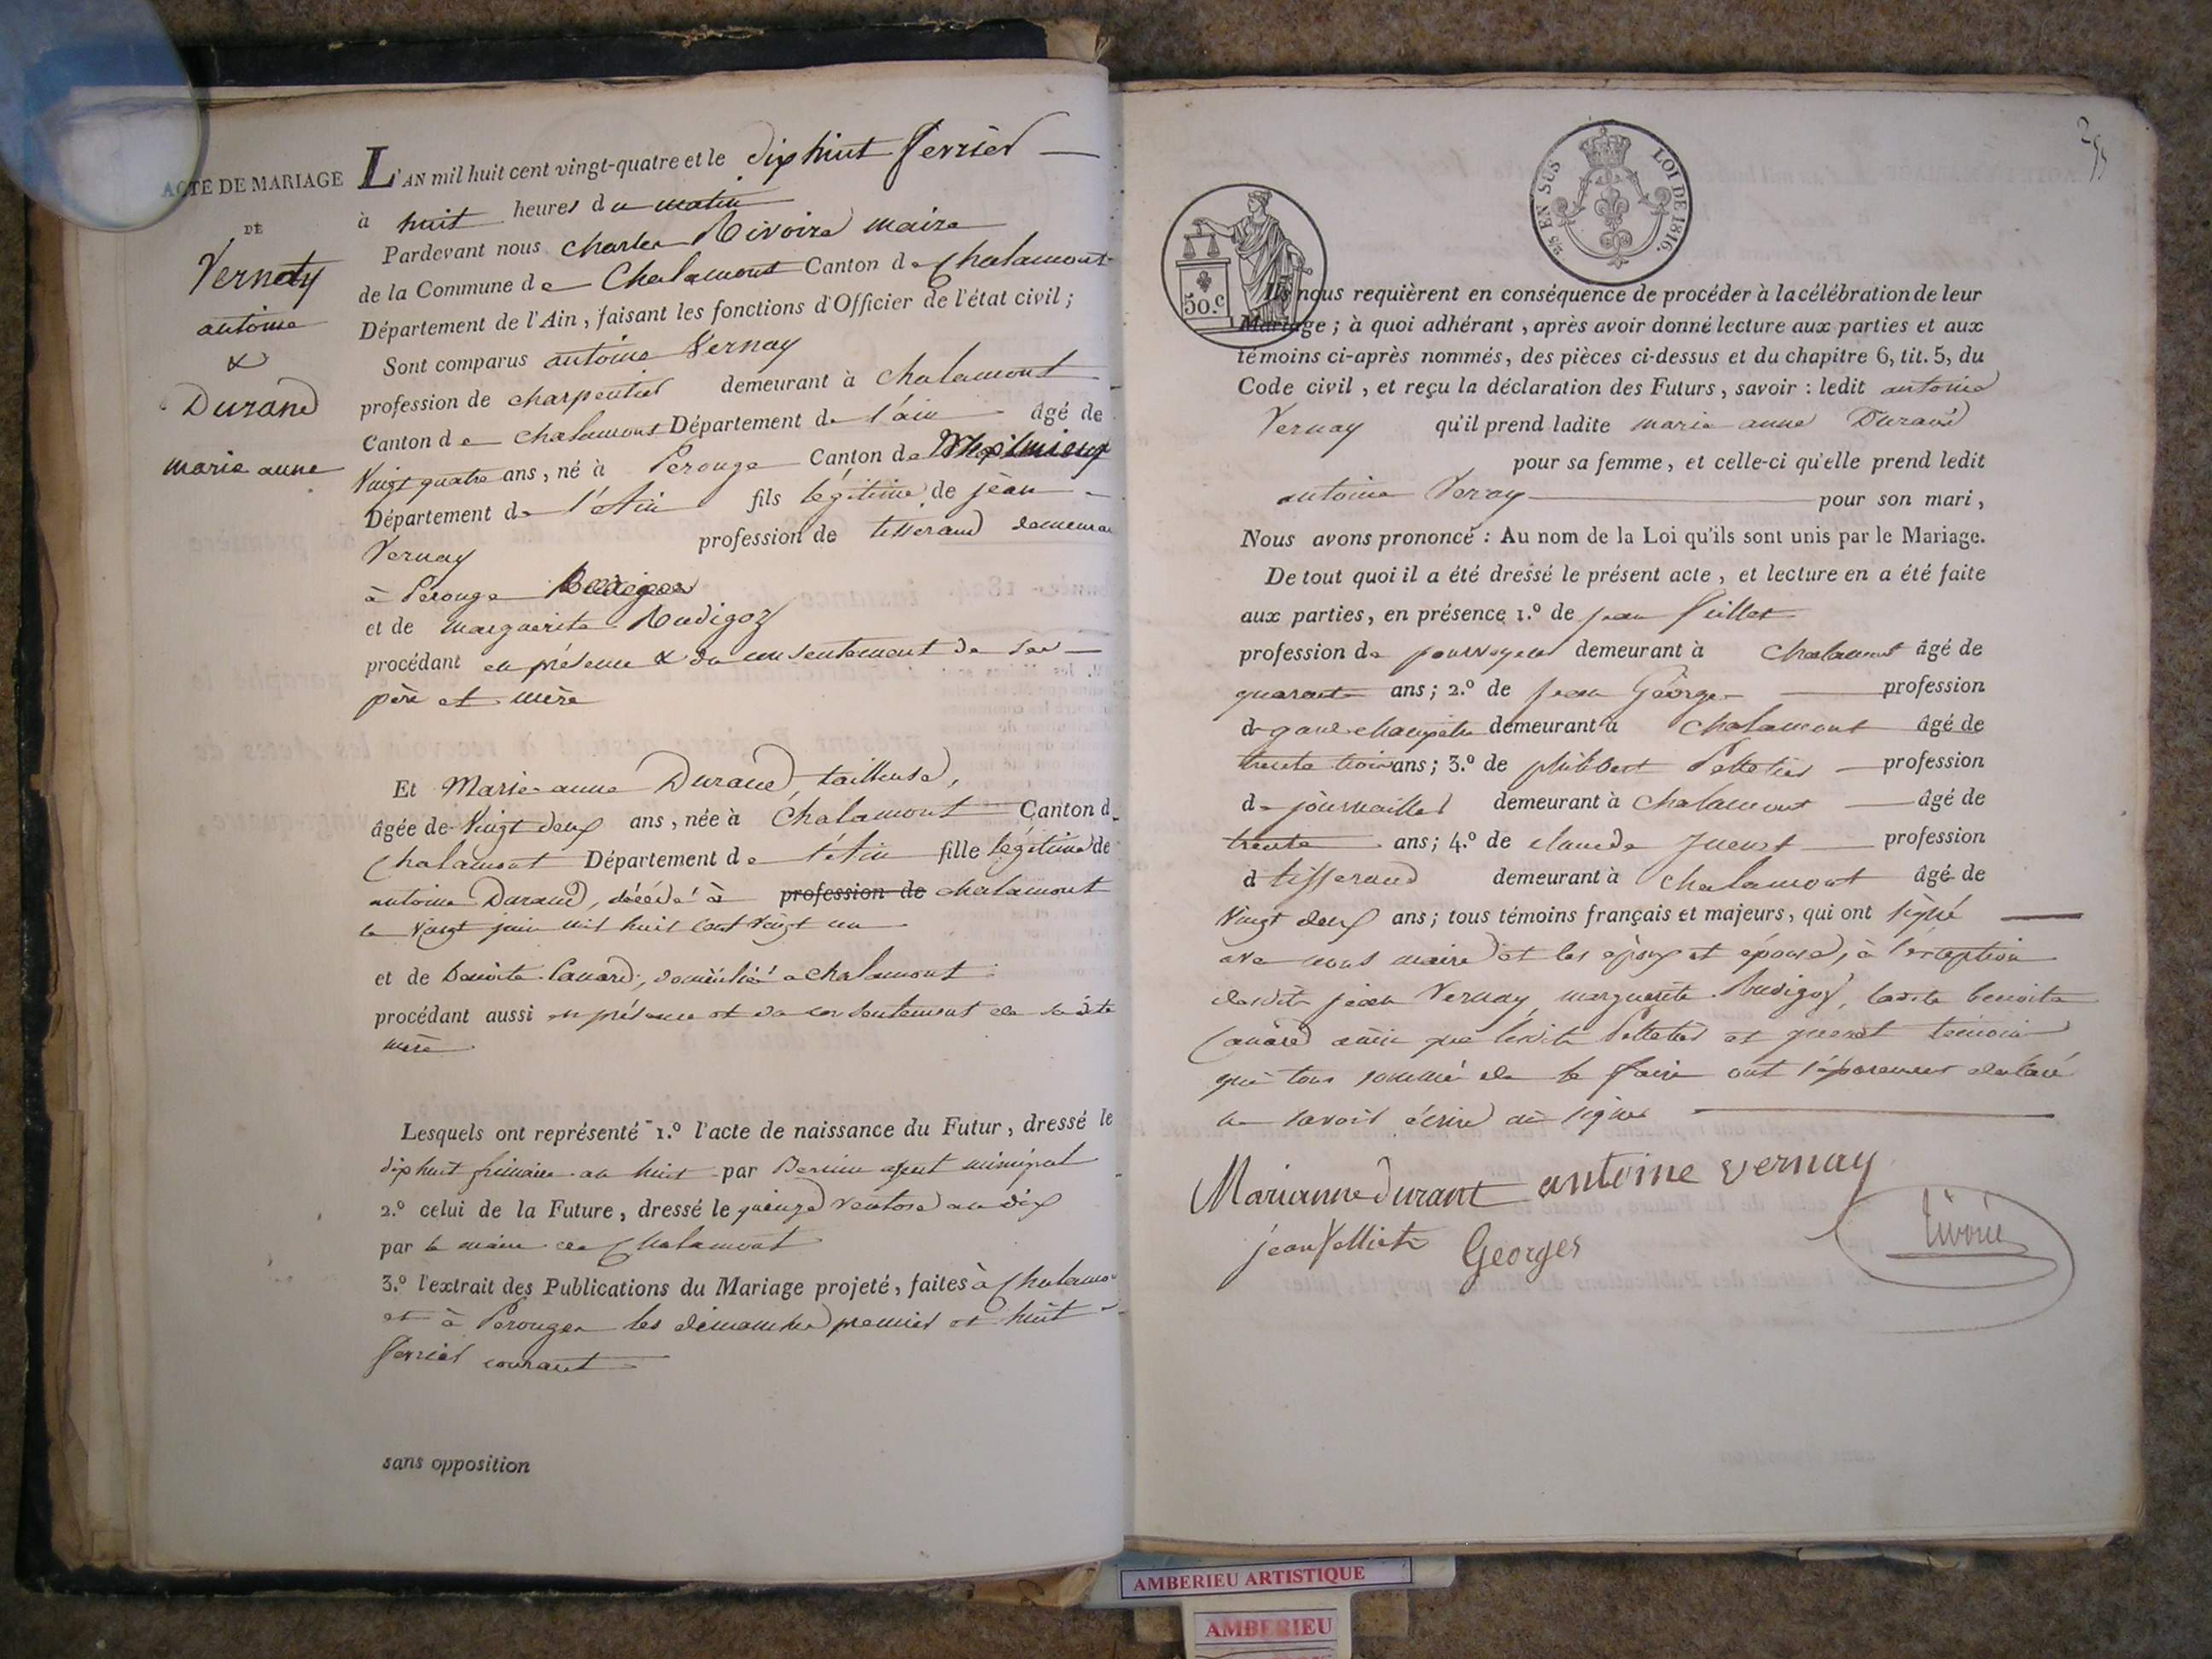 ACTE DE MARIAGE
DE
Vernay
antoine
&
Durand
marie anne
L'AN mil huit cent vingt-quatre et le dix huit fevrier
à huit heures du matin
Pardevant nous charles Rivoire maire
de la Commune de Chalamont Canton de Chalamont
Département de l'Ain, faisant les fonctions d'Officier de l'état civil;
Sont comparus antoine Vernay
profession de charpentier demeurant à chalamont
Canton de chalamont Département de l'ain âgé de
Vingt quatre ans, né à Perouge Canton de Meximieux
Département de l'Ain fils légitime de jean
Vernay profession de tisserand demeurant
à Perouge
et de marguerite Rudigoz
procédant en présence & du consentement de ses
père et mère
Et Marie anne Durand, tailleuse,
âgée de Vingt deux ans, née à Chalamont Canton de
Chalamont Département de l'Ain fille légitime de
antoine Durand, décédé à profession de chalamont
le Vingt juin mil huit cent Vingt un
et de Benoite Canard, domiciliée a chalamont
procédant aussi en présence et du consentement de sadite
mère
Lesquels ont représenté 1.º l'acte de naissance du Futur, dressé le
dix huit frimaire an huit par agent municipal
2.º celui de la Future, dressé le quinze Ventose an dix
par le maire de Chalamont
3.º l'extrait des Publications du Mariage projeté, faites à Chalamont
et à Perouges les dimanches premier et huit
fevrier courant
sans opposition
25 EN SUS LOI DE 1816.
50.C
Ils nous requièrent en conséquence de procéder à la célébration de leur
Mariage; à quoi adhérant, après avoir donné lecture aux parties et aux
témoins ci-après nommés, des pièces ci-dessus et du chapitre 6, tit. 5, du
Code civil, et reçu la déclaration des Futurs, savoir : ledit antoine
Vernay qu'il prend ladite marie anne Durand
pour sa femme, et celle-ci qu'elle prend ledit
antoine Vernay pour son mari,
Nous avons prononcé : Au nom de la Loi qu'ils sont unis par le Mariage.
De tout quoi il a été dressé le présent acte, et lecture en a été faite
aux parties, en présence 1.º de jean
profession de demeurant à Chalamont âgé de
quarante ans; 2.º de jean George profession
de garde champêtre demeurant à Chalamont âgé de
trente trois ans; 3.º de philibert Pelletier profession
de journaillier demeurant à Chalamont âgé de
trente ans; 4.º de claude profession
de tisserand demeurant à Chalamont âgé de
Vingt deux ans; tous témoins français et majeurs, qui ont signé
avec nous maire et les époux et épouse, à l'exception
desdits jean Vernay, marguerite Rudigoz, ladite benoite
Canard ainsi que lesdits Pelletier et temoins
qui tous sommé de le faire ont séparement declaré
ne savoir écrire ni signer
Marianne Durant antoine vernay
jean Georges Rivoire
AMBERIEU ARTISTIQUE
AMBERIEU